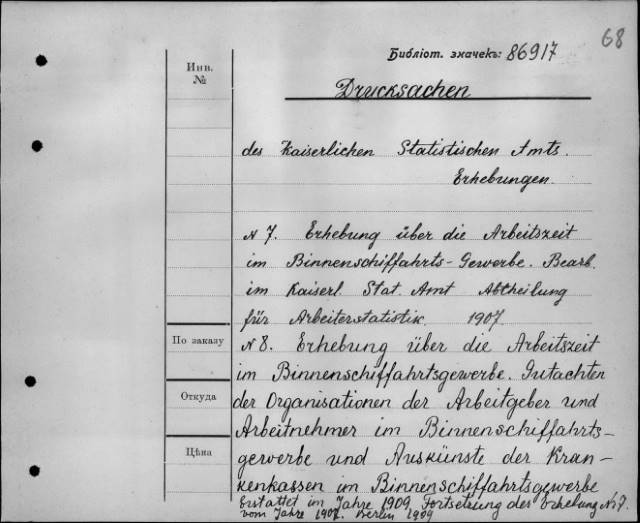 68
Библіот. значекъ: 86917
Инв.
№
Drucksachen
des Kaiserlichen Statistischen Amts.
Erhebungen.
N 7. Erhebung über die Arbeitszeit
im Binnenschiffahrts-Gewerbe. Bearb.
im Kaiserl. Stat. Amt Abtheilung
für Arbeiterstatistik. 1907
По заказу
N 8. Erhebung über die Arbeitszeit
im Binnenschiffahrtsgewerbe. Gutachten
Откуда
der Organisationen der Arbeitgeber und
Arbeitnehmer im Binnenschiffahrts-
Цѣна
gewerbe und Auskünste der Kran-
kenkassen im Binnenschiffahrtsgewerbe
Erstattet im Jahre 1909 Fortsetzung der Erhebung N. 7.
vom Jahre 1907. Berlin 1909